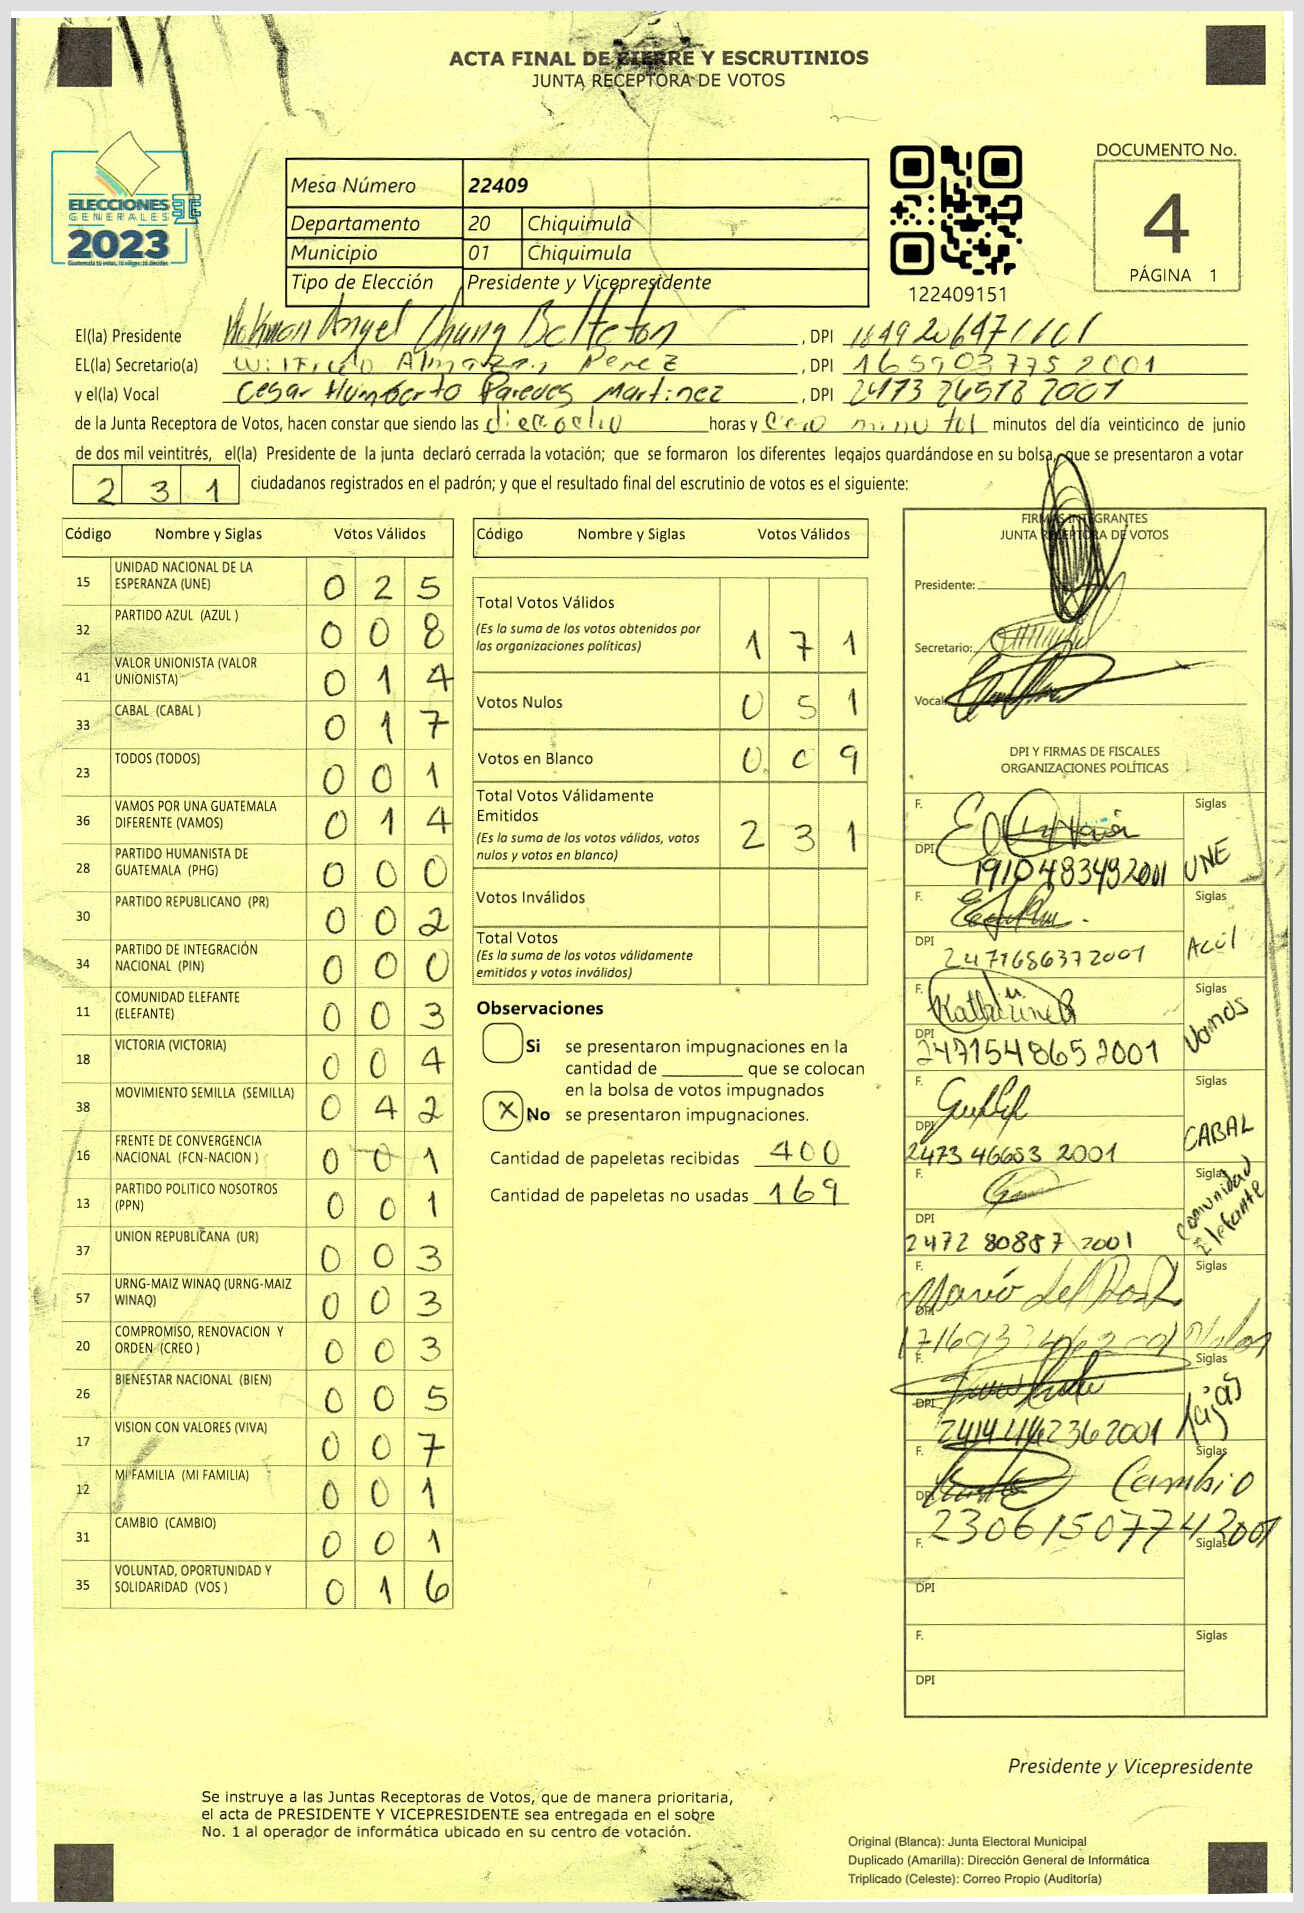 ACTA FINAL DE CIERRE Y ESCRUTINIOS
JUNTA RECEPTORA DE VOTOS
ELECCIONES
GENERALES
2023
Mesa Número 22409
Departamento 20 Chiquimula
Municipio 01 Chiquimula
Tipo de Elección Presidente y Vicepresidente
122409151
DOCUMENTO No.
4
PÁGINA 1
El(la) Presidente Angel Chung , DPI
EL(la) Secretario(a) Wilfredo Almazan Perez , DPI 165903775 2001
y el(la) Vocal Cesar Humberto Paredes Martinez , DPI 2473 26518 2001
de la Junta Receptora de Votos, hacen constar que siendo las dieciocho horas y cero minutos minutos del día veinticinco de junio
de dos mil veintitrés, el(la) Presidente de la junta declaró cerrada la votación; que se formaron los diferentes legajos guardándose en su bolsa, que se presentaron a votar
231 ciudadanos registrados en el padrón; y que el resultado final del escrutinio de votos es el siguiente:
Código Nombre y Siglas Votos Válidos
15 UNIDAD NACIONAL DE LA ESPERANZA (UNE) 0 2 5
32 PARTIDO AZUL (AZUL ) 0 0 8
41 VALOR UNIONISTA (VALOR UNIONISTA) 0 1 4
33 CABAL (CABAL ) 0 1 7
23 TODOS (TODOS) 0 0 1
36 VAMOS POR UNA GUATEMALA DIFERENTE (VAMOS) 0 1 4
28 PARTIDO HUMANISTA DE GUATEMALA (PHG) 0 0 0
30 PARTIDO REPUBLICANO (PR) 0 0 2
34 PARTIDO DE INTEGRACIÓN NACIONAL (PIN) 0 0 0
11 COMUNIDAD ELEFANTE (ELEFANTE) 0 0 3
18 VICTORIA (VICTORIA) 0 0 4
38 MOVIMIENTO SEMILLA (SEMILLA) 0 4 2
16 FRENTE DE CONVERGENCIA NACIONAL (FCN-NACION ) 0 0 1
13 PARTIDO POLITICO NOSOTROS (PPN) 0 0 1
37 UNION REPUBLICANA (UR) 0 0 3
57 URNG-MAIZ WINAQ (URNG-MAIZ WINAQ) 0 0 3
20 COMPROMISO, RENOVACION Y ORDEN (CREO ) 0 0 3
26 BIENESTAR NACIONAL (BIEN) 0 0 5
17 VISION CON VALORES (VIVA) 0 0 7
12 MI FAMILIA (MI FAMILIA) 0 0 1
31 CAMBIO (CAMBIO) 0 0 1
35 VOLUNTAD, OPORTUNIDAD Y SOLIDARIDAD (VOS ) 0 1 6
Código Nombre y Siglas Votos Válidos
Total Votos Válidos
(Es la suma de los votos obtenidos por
las organizaciones políticas) 1 7 1
Votos Nulos 0 5 1
Votos en Blanco 0 0 9
Total Votos Válidamente
Emitidos
(Es la suma de los votos válidos, votos
nulos y votos en blanco) 2 3 1
Votos Inválidos
Total Votos
(Es la suma de los votos válidamente
emitidos y votos inválidos)
Observaciones
Si se presentaron impugnaciones en la
cantidad de ________ que se colocan
en la bolsa de votos impugnados
X No se presentaron impugnaciones.
Cantidad de papeletas recibidas 400
Cantidad de papeletas no usadas 169
FIRMAS INTEGRANTES
JUNTA RECEPTORA DE VOTOS
Presidente:
Secretario:
Vocal
DPI Y FIRMAS DE FISCALES
ORGANIZACIONES POLÍTICAS
F. Siglas
DPI 1910483492001 UNE
F. Siglas
DPI 2471686372001
F. Siglas
DPI 247154865 2001 Vamos
F. Siglas
DPI 2473 46653 2001 CABAL
F. Siglas
DPI 2472 80887 2001 Comunidad Elefante
F. Siglas
DPI
F. Siglas
DPI
F. Siglas
DPI Cambio
F. Siglas
DPI
F. Siglas
DPI
Presidente y Vicepresidente
Se instruye a las Juntas Receptoras de Votos, que de manera prioritaria,
el acta de PRESIDENTE Y VICEPRESIDENTE sea entregada en el sobre
No. 1 al operador de informática ubicado en su centro de votación.
Original (Blanca): Junta Electoral Municipal
Duplicado (Amarilla): Dirección General de Informática
Triplicado (Celeste): Correo Propio (Auditoría)